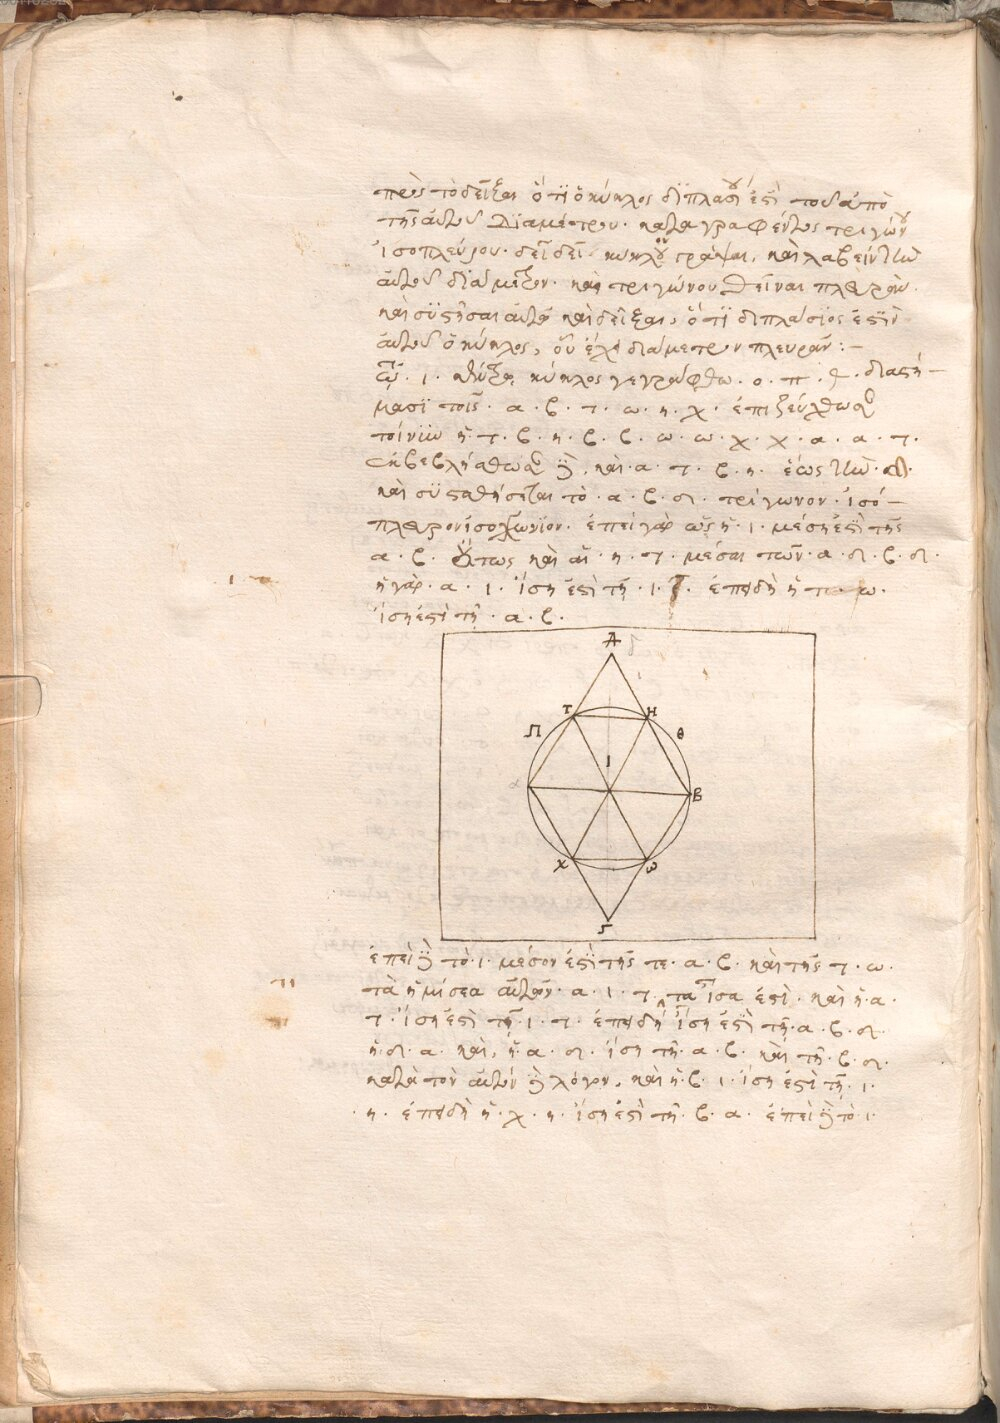 πρὸς τὸ δεῖξαι ὅτι ὁ κύκλος διπλάσιός ἐστι τοῦ ἀπὸ
τῆς αὐτοῦ διαμέτρου καταγραφέντος τριγώνου
ἰσοπλεύρου. δεῖ δεῖ κύκλον γράψαι, καὶ λαβεῖν τὴν
αὐτοῦ διάμετρον. καὶ τριγώνου θεῖναι πλευρὰν.
καὶ συστῆσαι αὐτὸ καὶ δεῖξαι, ὅτι διπλάσιος ἐστὶν
αὐτοῦ ὁ κύκλος, οὗ ἔχει διάμετρον πλευράν :–
ι κύκλος γεγράφθω. ο. π. διαστή–
μασι τοῖς. α. β. τ. ω. η. χ. ἐπιζεύχθωσαν
τοίνυν ἡ. τ. β. η. β. β. ω. ω. χ. χ. α. α. τ.
ἐκβεβλήσθωσαν καὶ. α. τ. β. η. ἕως
καὶ συσταθήσεται τὸ. α. β. δ. τρίγωνον. ἰσό–
πλευρον ἰσογώνιον. ἐπεὶ γὰρ ὡς ἡ. ι. μέση ἐστὶ τῆς
α. β. οὕτως καὶ αἱ. η. τ. μέσαι τῶν. α. δ. β. δ.
ἡ γὰρ. α. ι. ἴση ἐστὶ τῇ. ι. τ. ἐπειδὴ ἡ τ. ω.
ἴση ἐστὶ τῇ. α. β.
Δ
Τ Η
Π Θ
Ι
α Β
Χ ω
Γ
ἐπεὶ τὸ. ι. μέσον ἐστὶ τῆς τε. α. β. καὶ τῆς τ. ω.
τὰ ἡμίσεα αὐτῶν. α. ι. τ. τα ἴσα ἐστὶ. καὶ ἡ α.
τ. ἴση ἐστὶ τῇ. ι. τ. ἐπειδὴ ἴση ἐστὶ τῇ. α. β. δ.
ἡ. δ. α. καὶ, ἡ α. δ. ἴση τῇ. α. β. καὶ τῇ. β. δ.
κατὰ τὸν αὐτὸν λόγον, καὶ ἡ. β. ι. ἴση ἐστὶ τῇ. ι.
. η. ἐπειδὴ ἡ. χ. η. ἴση ἐστὶ τῇ. β. α. ἐπεὶ τὸ. ι.